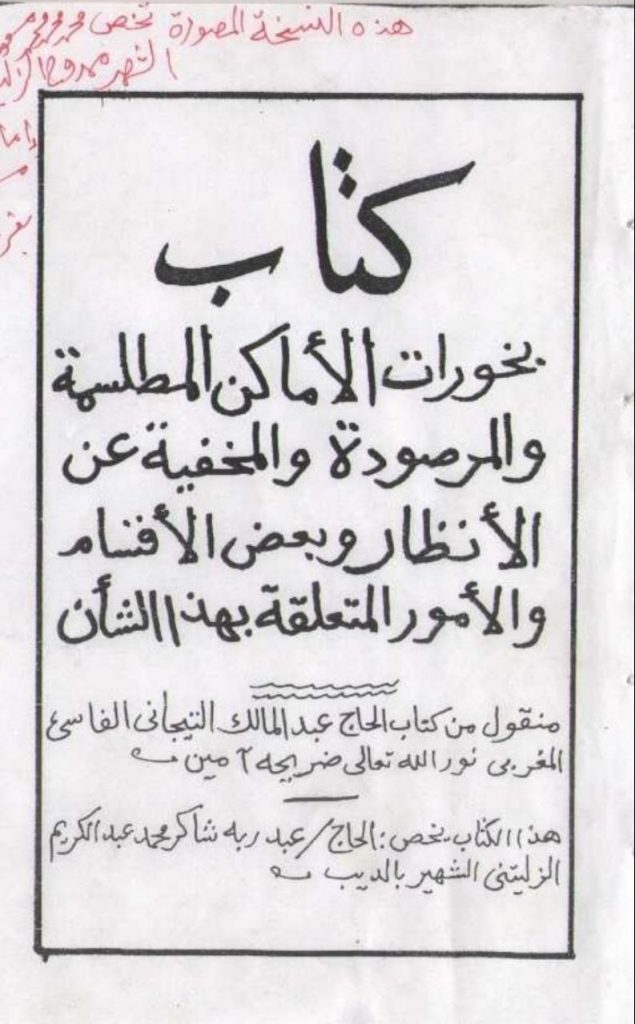 هذه النسخة المصورة تخص محمد محمد
الشهير
كتاب
بخورات الأماكن المطلسمة
والمرصودة والمخفية عن
الأنظار وبعض الأقسام
والأمور المتعلقة بهذا الشأن
منقول من كتاب الحاج عبد المالك التيجانى الفاسى
المغربى نور الله تعالى ضريحه آمين
هذا الكتاب يخص : الحاج / عبد ربه شاكر محمد عبد الكريم
الزليتنى الشهير بالديب